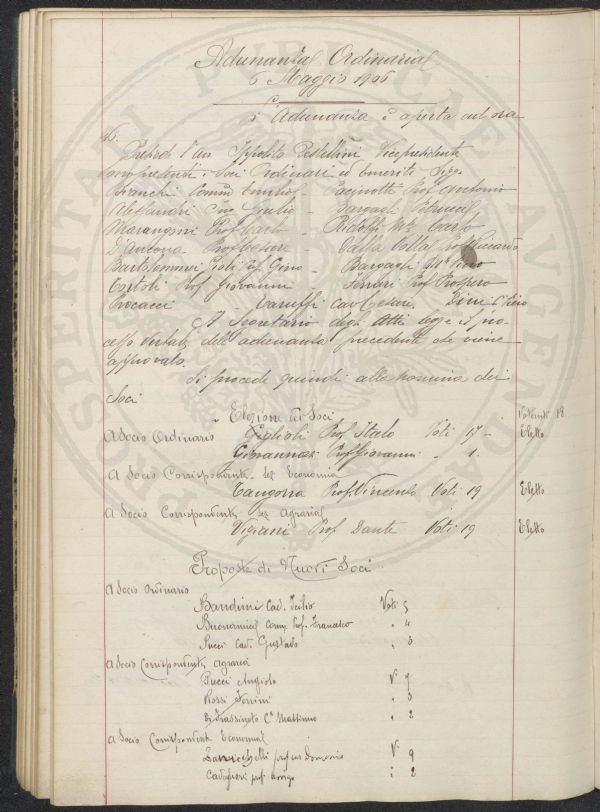 Adunanza Ordinaria
6 Maggio 1906
L'Adunanza è aperta ad ora
Presiede l'avv Ippolito Pestellini Vicepresidente
sono presenti i Soci Ordinari ed Emeriti Sigg.
Bianchi Comm Emilio - Pacinotti Prof Antonio
Alessandri Ing Giulio - Bargagli
Marangoni Prof Carlo - Ridolfi Mse Carlo
D'Ancona Prof Cesare Dalla Volta Prof Riccardo
Bartolommei Gioli Prof. Gino - Bargagli Mse Piero
Bastoli Prof Giovanni Ferrari Prof Prospero
Procacci Taruffi Cav Cesare. Pini Piero
Il Segretario degli Atti legge il pro-
cesso verbale dell'adunanza precedente che viene
approvato.
Si procede quindi alla nomina dei
Soci
Elezione dei Soci
Votanti 18
A Socio Ordinario Giglioli Prof Italo Voti 17 - Eletto
Giovannozzi Prof Giovanni " 1.
A Socio Corrispondente sez Economia
Tangorra Prof. Vincenzo Voti 19 Eletto
A Socio Corrispondente sez Agraria
Vigiani Prof Dante Voti 19 Eletto
Proposte di Nuovi Soci
A Socio Ordinario
Bandini Cav. Icilio Voti 5
Buonamici Comm Prof. Francesco " 4
Pucci Cav. Gustavo " 3
A Socio Corrispondente Agraria
Pucci Angiolo V.
Rossi Ferrini " 3
Di Frassineto Cte Massimo " 2
A Socio Corrispondente Economia
Zanichelli prof Domenico V. 9
prof. Arrigo " 2